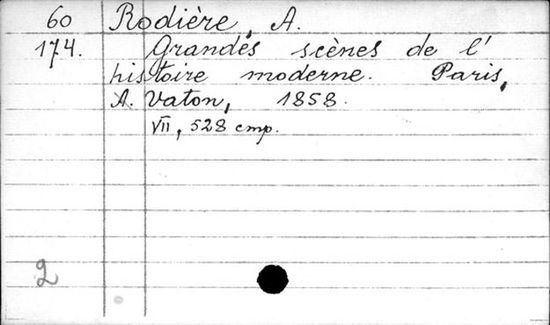 60 Rodière, A.
174. Grandes scènes de l'
histoire moderne. Paris,
A. Vaton, 1858.
VII, 528 cmp.
2